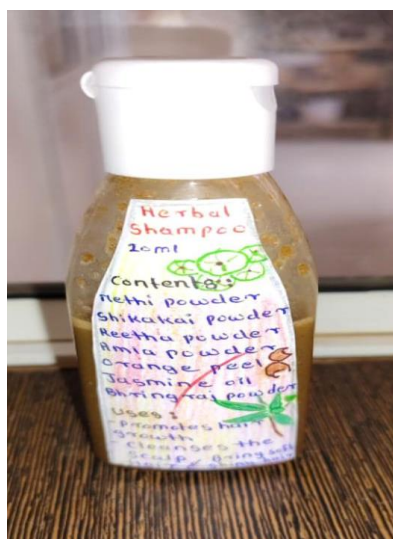 Herbal
Shampoo
20ml
Contents:
Methi powder
Shikakai powder
Reetha powder
Amla powder
Orange peel
Jasmine oil
Bhringraj powder
Uses:
-promotes hair
growth
-Cleanses the
scalp